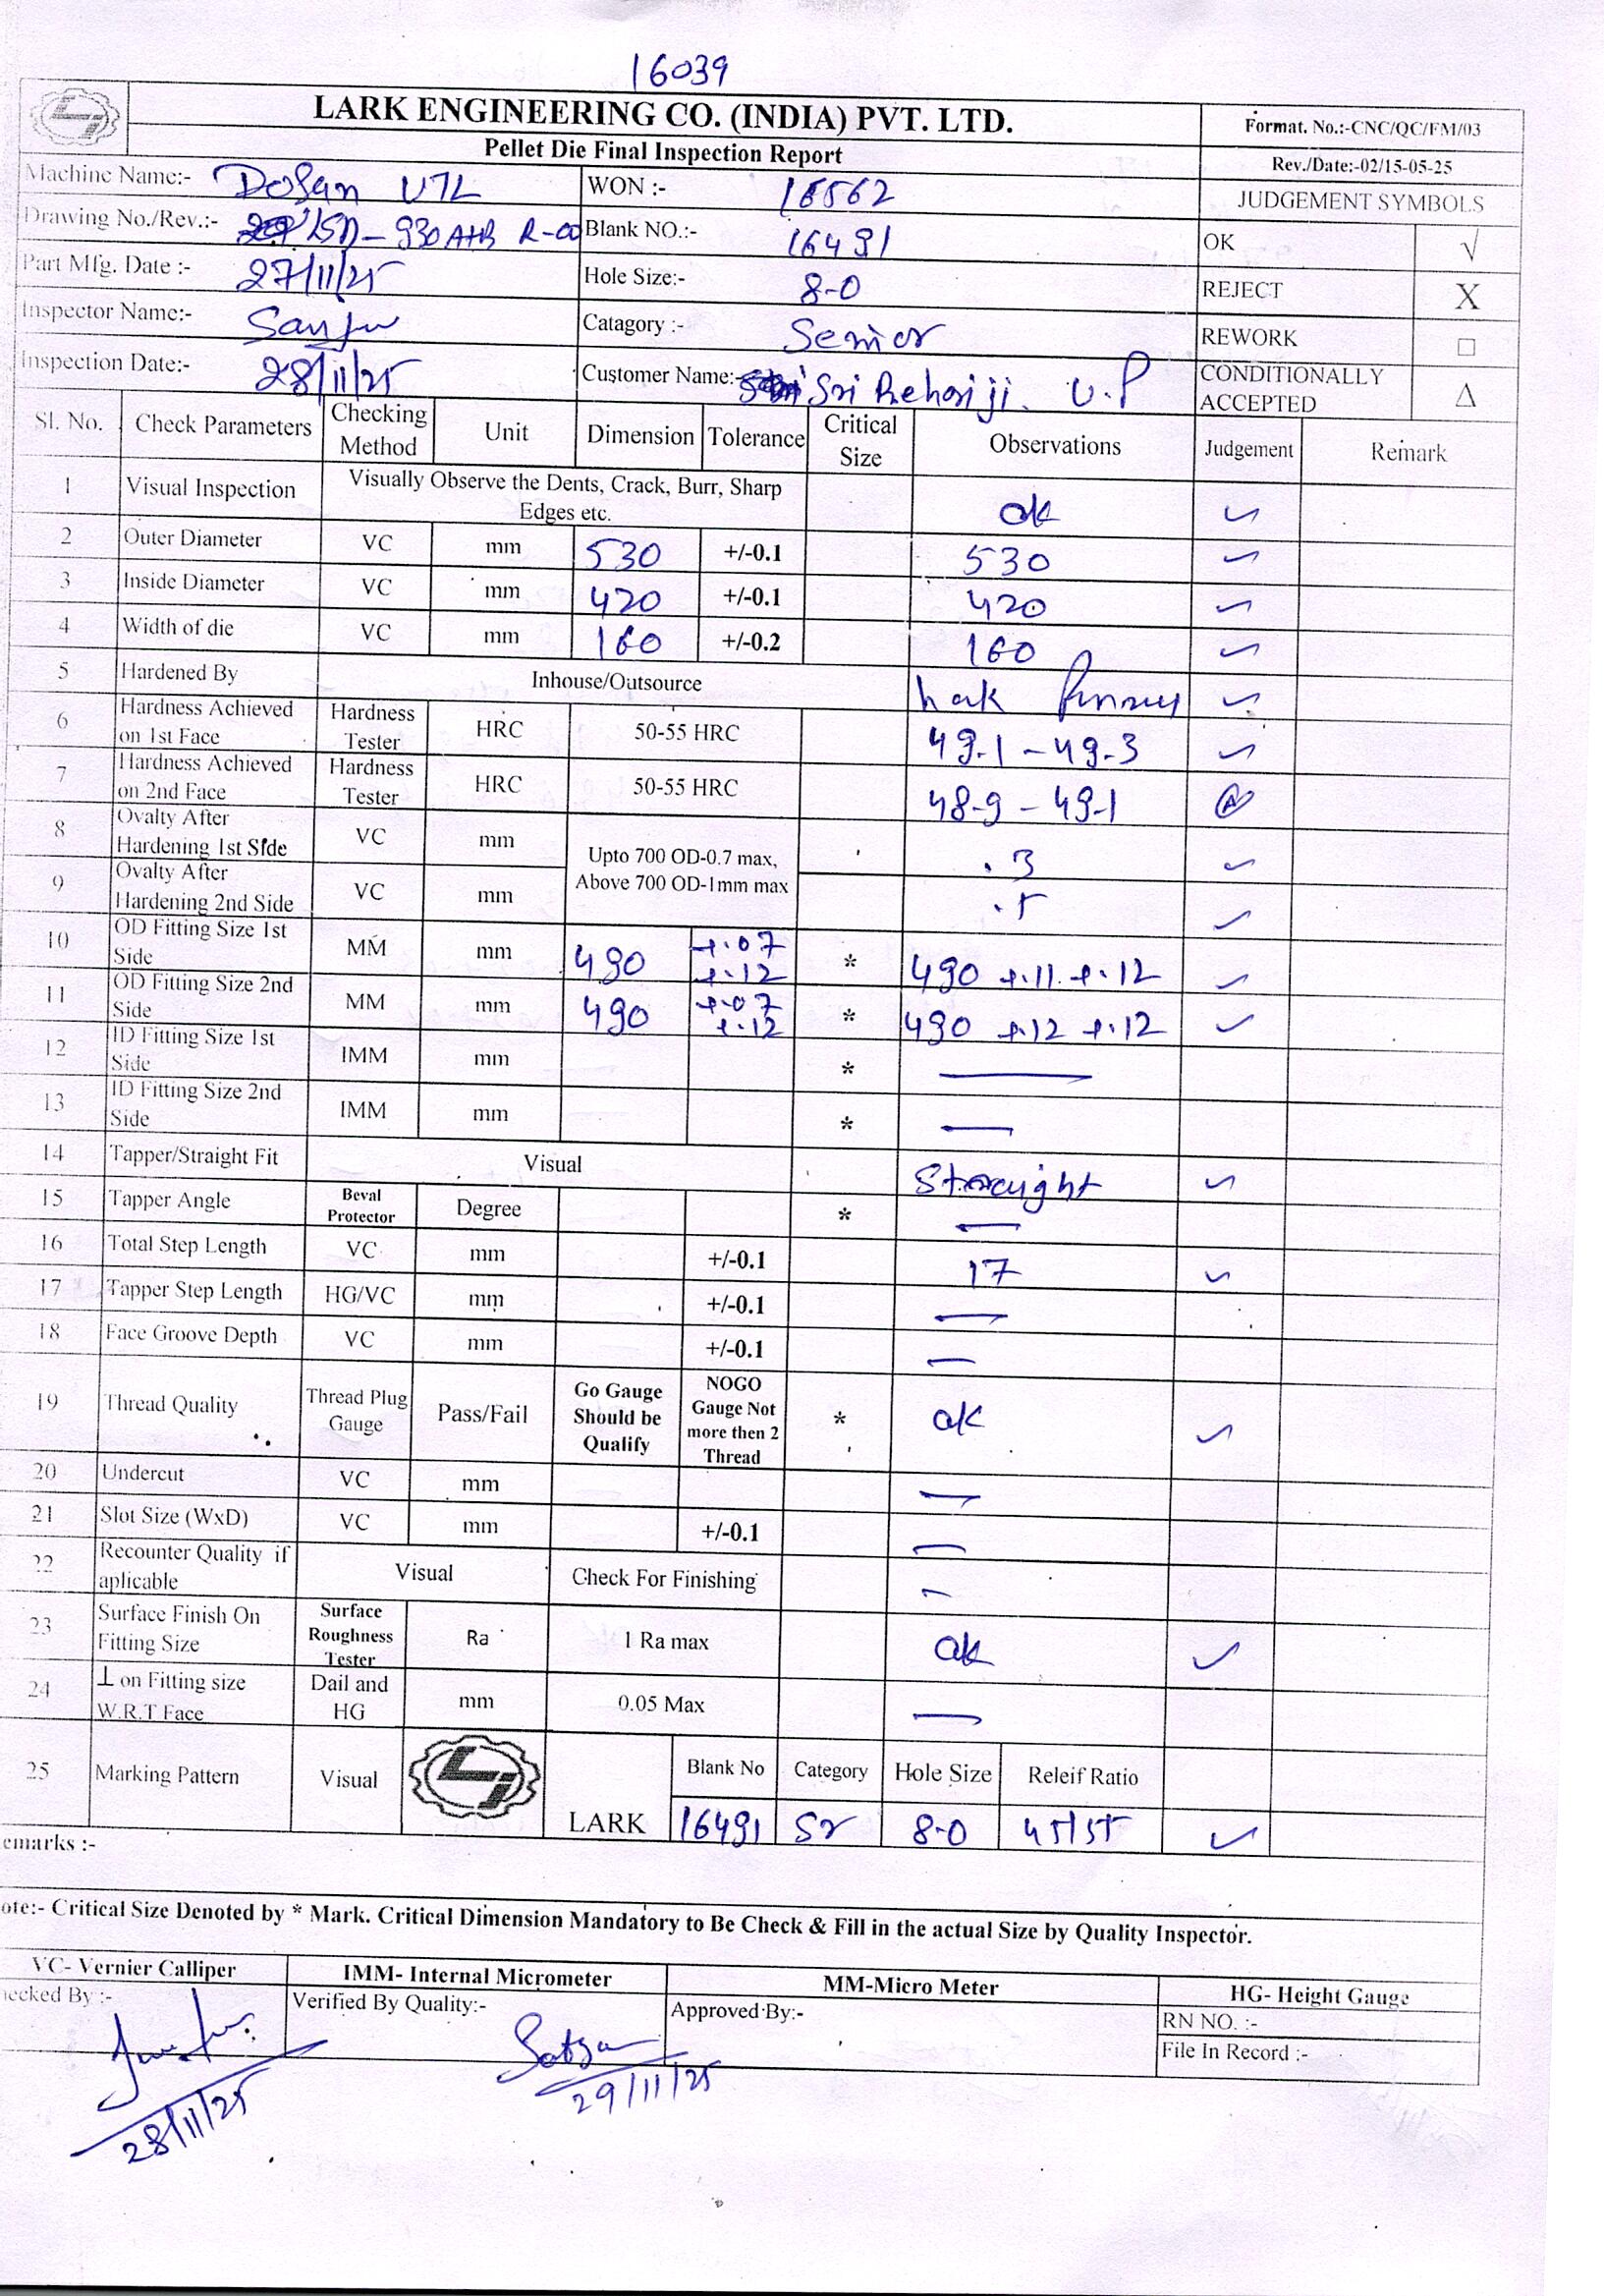 16039
LARK ENGINEERING CO. (INDIA) PVT. LTD.
Pellet Die Final Inspection Report
Format. No.:-CNC/QC/FM/03
Rev./Date:-02/15-05-25
Machine Name:- Dosan VTL WON :- 16562 JUDGEMENT SYMBOLS
Drawing No./Rev.:- R-00 Blank NO.:- 16491 OK √
Part Mfg. Date :- 27/11/25 Hole Size:- 8-0 REJECT X
Inspector Name:- Sanju Catagory :- Senior REWORK □
Inspection Date:- 28/11/25 Customer Name:- Sri Behariji. U.P CONDITIONALLY ACCEPTED △
Sl. No. Check Parameters Checking Method Unit Dimension Tolerance Critical Size Observations Judgement Remark
1 Visual Inspection Visually Observe the Dents, Crack, Burr, Sharp Edges etc. ok ✓
2 Outer Diameter VC mm 530 +/-0.1 530 ✓
3 Inside Diameter VC mm 420 +/-0.1 420 ✓
4 Width of die VC mm 160 +/-0.2 160 ✓
5 Hardened By Inhouse/Outsource ✓
6 Hardness Achieved on 1st Face Hardness Tester HRC 50-55 HRC 49.1 - 49.3 ✓
7 Hardness Achieved on 2nd Face Hardness Tester HRC 50-55 HRC 48.9 - 49.1
8 Ovalty After Hardening 1st Side VC mm Upto 700 OD-0.7 max, Above 700 OD-1mm max .3 ✓
9 Ovalty After Hardening 2nd Side VC mm .5 ✓
10 OD Fitting Size 1st Side MM mm 490 +.07 +.12 * 490 +.11 +.12 ✓
11 OD Fitting Size 2nd Side MM mm 490 +.07 +.12 * 490 +.12 +.12 ✓
12 ID Fitting Size 1st Side IMM mm * —
13 ID Fitting Size 2nd Side IMM mm * —
14 Tapper/Straight Fit Visual Straight ✓
15 Tapper Angle Beval Protector Degree * —
16 Total Step Length VC mm +/-0.1 17 ✓
17 Tapper Step Length HG/VC mm +/-0.1 —
18 Face Groove Depth VC mm +/-0.1 —
19 Thread Quality Thread Plug Gauge Pass/Fail Go Gauge Should be Qualify NOGO Gauge Not more then 2 Thread * ok ✓
20 Undercut VC mm —
21 Slot Size (WxD) VC mm +/-0.1 —
22 Recounter Quality if aplicable Visual Check For Finishing —
23 Surface Finish On Fitting Size Surface Roughness Tester Ra 1 Ra max ok ✓
24 ⊥ on Fitting size W.R.T Face Dail and HG mm 0.05 Max —
25 Marking Pattern Visual LARK Blank No Category Hole Size Releif Ratio
16491 Sr 8-0 45/55 ✓
emarks :-
ote:- Critical Size Denoted by * Mark. Critical Dimension Mandatory to Be Check & Fill in the actual Size by Quality Inspector.
VC- Vernier Calliper IMM- Internal Micrometer MM-Micro Meter HG- Height Gauge
hecked By :- Verified By Quality:- Approved By:- RN NO. :-
File In Record :-
28/11/25 29/11/25